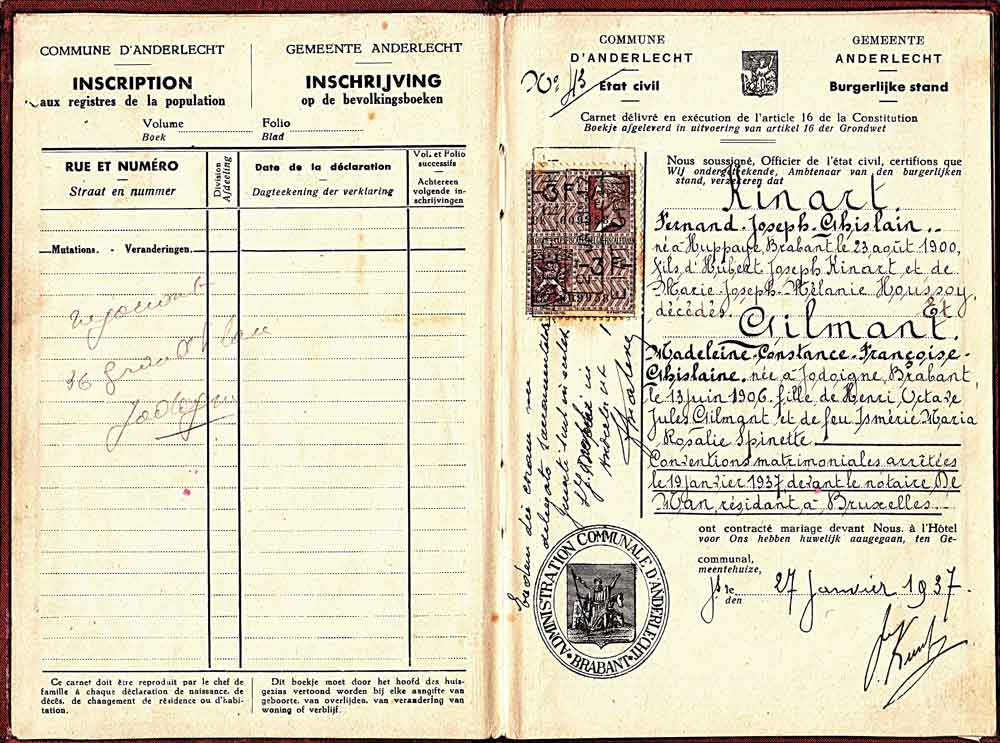 COMMUNE D'ANDERLECHT
INSCRIPTION
aux registres de la population
GEMEENTE ANDERLECHT
INSCHRIJVING
op de bevolkingsboeken
Volume
Boek
Folio
Blad
RUE ET NUMÉRO
Straat en nummer
Division
Afdeeling
Date de la déclaration
Dagteekening der verklaring
Vol. et Folio
successifs
Achtereen
volgende in-
schrijvingen
Mutations. - Veranderingen.
36 Grand Place
Jodoigne
Ce carnet doit être reproduit par le chef de
famille à chaque déclaration de naissance, de
décès, de changement de résidence ou d'habi-
tation.
Dit boekje moet door het hoofd des huis-
gezins vertoond worden bij elke aangifte van
geboorte, van overlijden, van verandering van
woning of verblijf.
COMMUNE
D'ANDERLECHT
État civil
GEMEENTE
ANDERLECHT
Burgerlijke stand
No 43
Carnet délivré en exécution de l'article 16 de la Constitution
Boekje afgeleverd in uitvoering van artikel 16 der Grondwet
Nous soussigné, Officier de l'état civil, certifions que
Wij ondergeteekende, Ambtenaar van den burgerlijken
stand, verzekeren dat
Kinart
Fernand-Joseph-Ghislain
né à Huppaye, Brabant le 23 août 1900,
fils d'Hubert Joseph Kinart et de
Marie Joseph-Mélanie Houssoy,
décédés. Et
Gilmant
Madeleine-Constance-Françoise-
Ghislaine, née à Jodoigne, Brabant,
le 13 juin 1906, fille de Henri Octave
Jules Gilmant et de feu Ismérie Maria
Rosalie Spinette
Conventions matrimoniales arrêtées
le 19 janvier 1937 devant le notaire De
Man résidant à Bruxelles
ont contracté mariage devant Nous, à l'Hôtel
voor Ons hebben huwelijk aangegaan, ten Ge-
communal,
meentehuize,
le
den
27 janvier 1937
3 F
3 F
ADMINISTRATION COMMUNALE D'ANDERLECHT
BRABANT